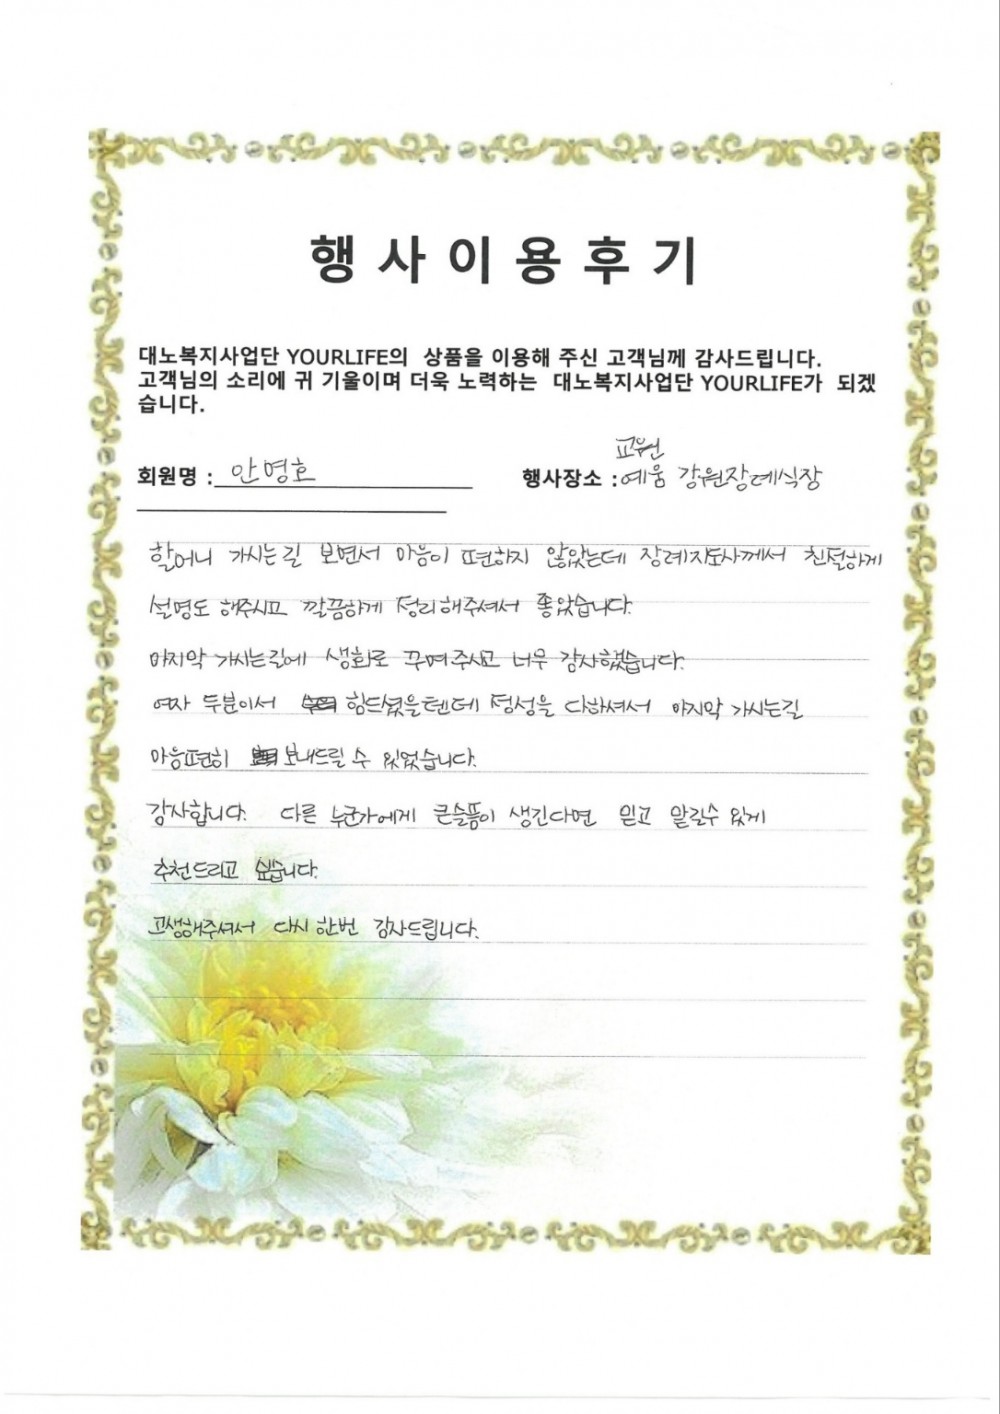 행사이용후기
대노복지사업단 YOURLIFE의 상품을 이용해 주신 고객님께 감사드립니다.
고객님의 소리에 귀 기울이며 더욱 노력하는 대노복지사업단 YOURLIFE가 되겠
습니다.
교원
회원명 : 안명호 행사장소 : 예움 강원장례식장
할머니 가시는길 보면서 마음이 편하지 않았는데 장례지도사께서 친절하게
설명도 해주시고 깔끔하게 정리해주셔서 좋았습니다.
마지막 가시는길에 생화로 꾸며주시고 너무 감사했습니다.
여자 두분이서 힘드셨을텐데 정성을 다하셔서 마지막 가시는길
마음편히 보내드릴 수 있었습니다.
감사합니다. 다른 누군가에게 큰슬픔이 생긴다면 믿고 맡길수 있게
추천드리고 싶습니다.
고생해주셔서 다시 한번 감사드립니다.